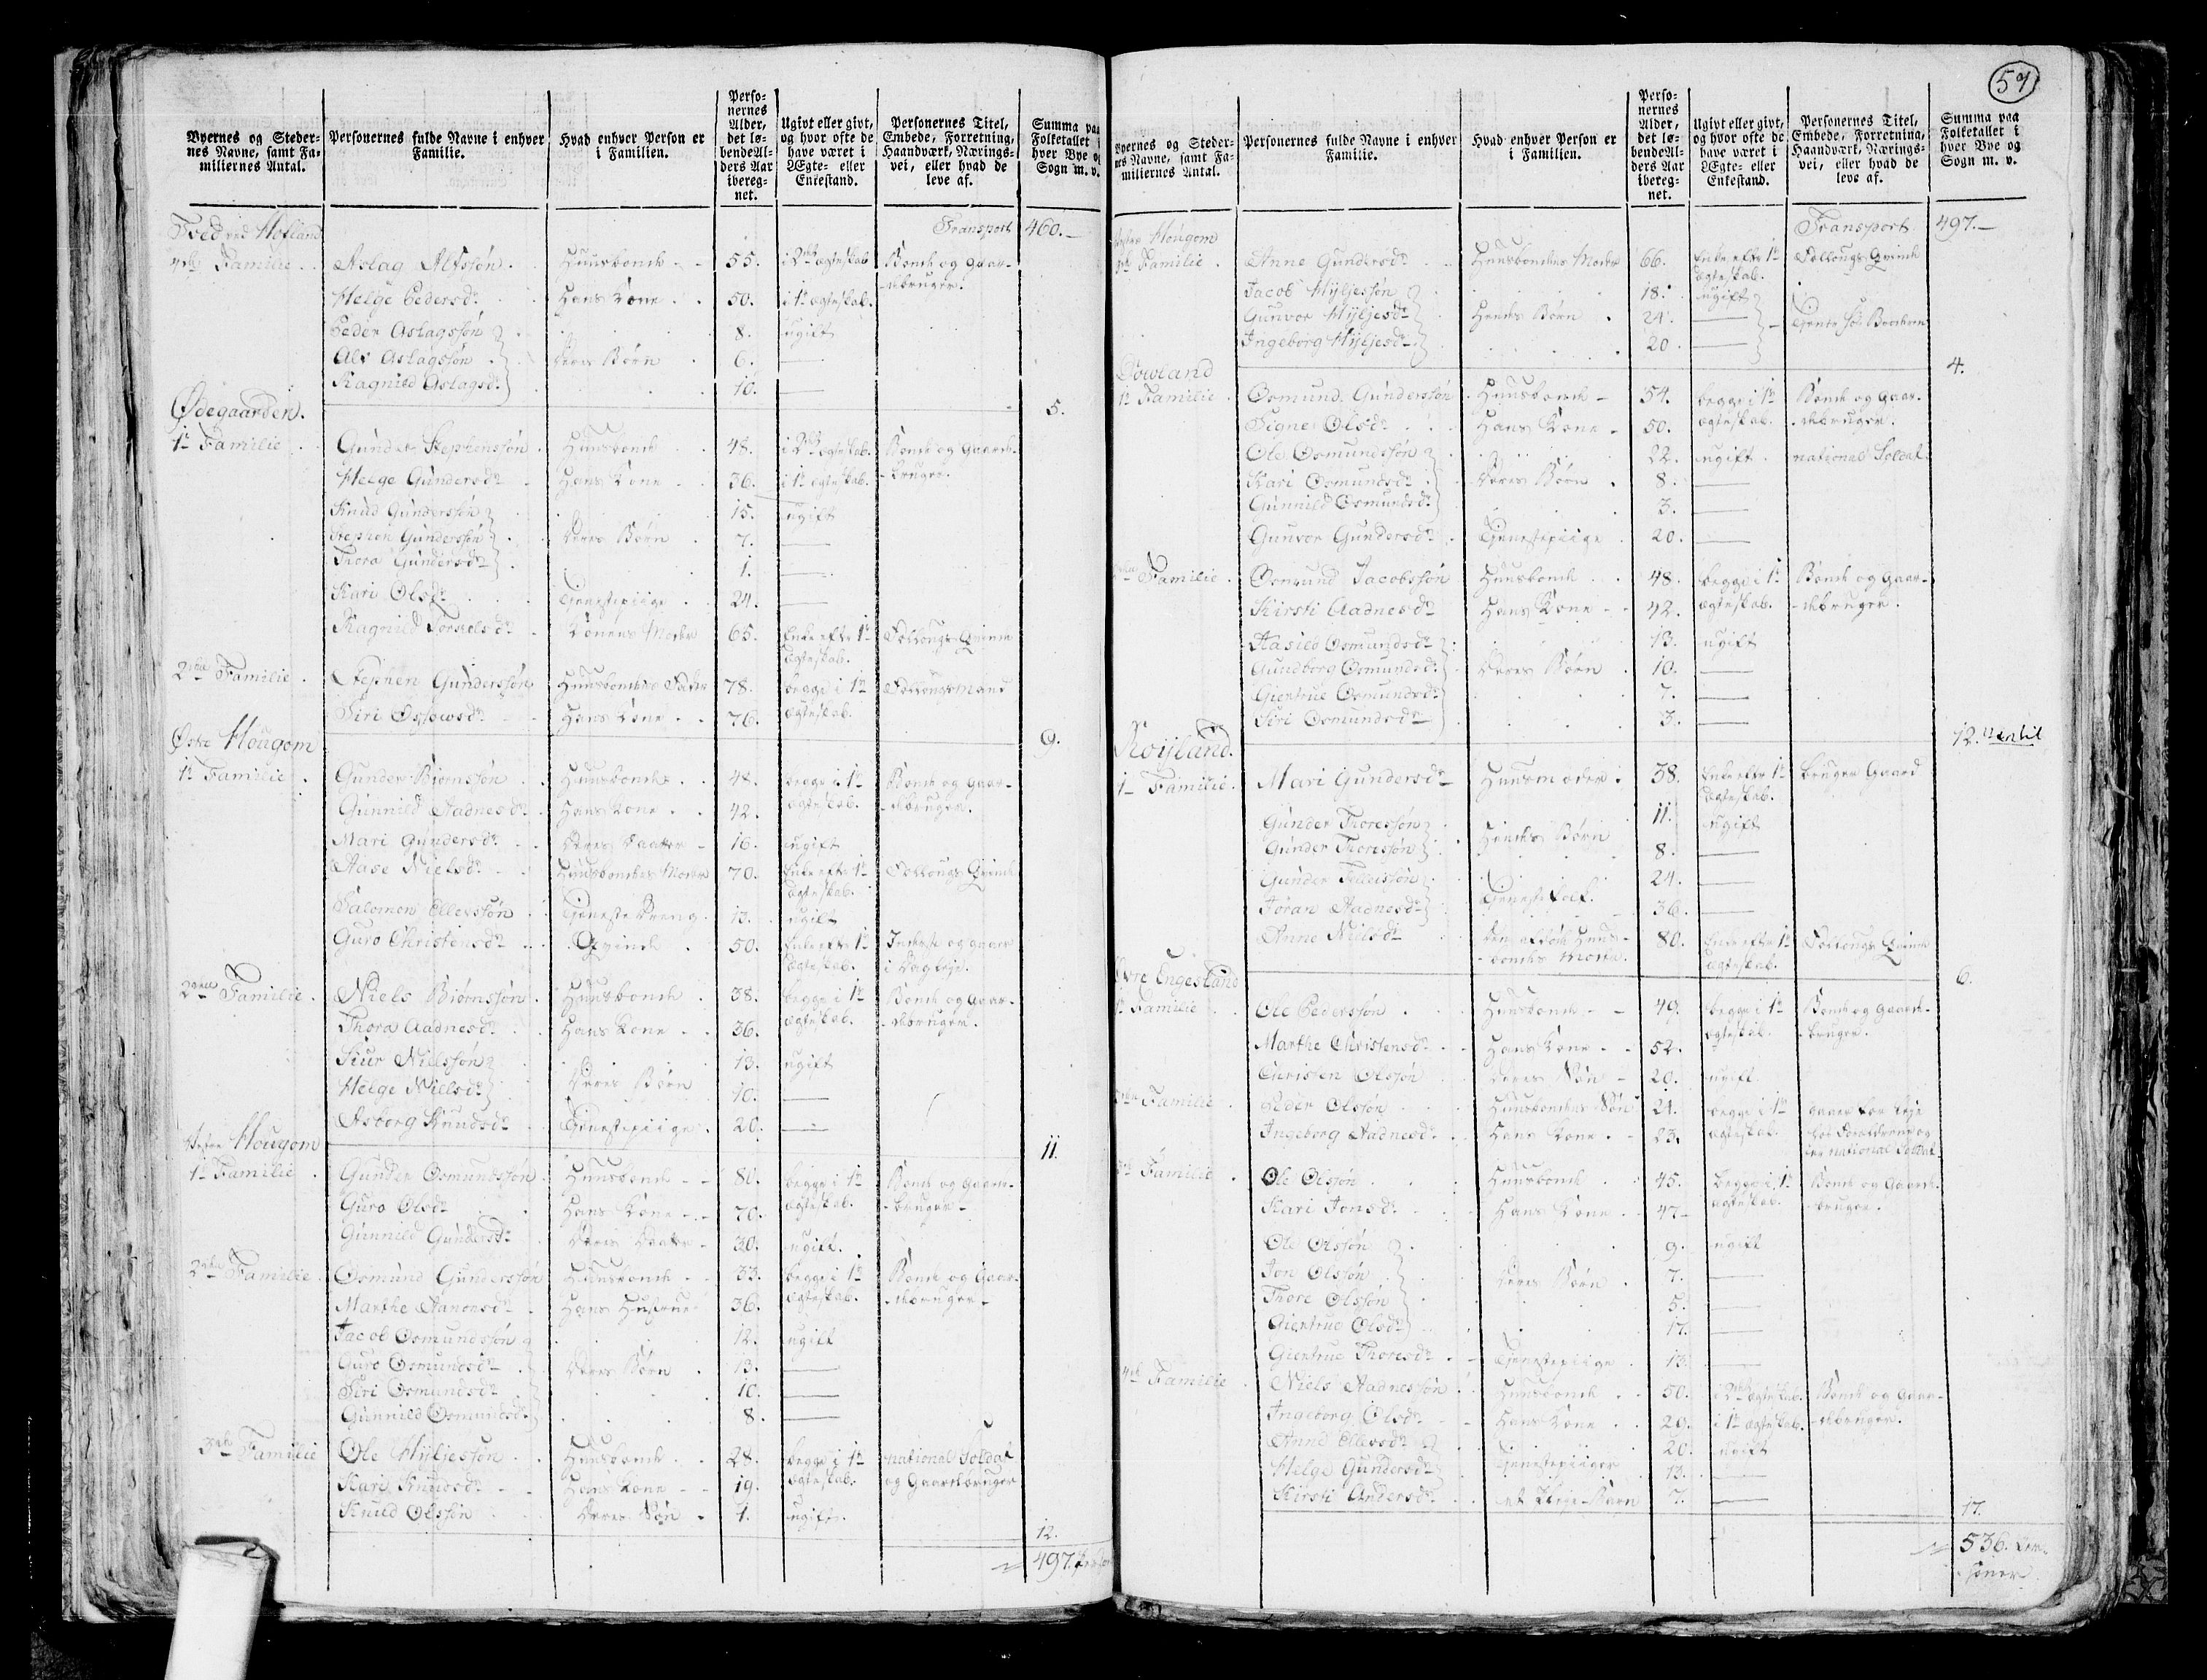 Byernes og Steder-
nes Navne, samt Fa-
miliernes Antal.
Personernes fulde Navne i enhver
Familie.
Hvad enhver Person er
i Familien.
Perso-
nernes
Alder,
det lø-
bende Al-
ders Aar
ibereg-
net.
Ugivt eller givt,
og hvor ofte de
have været i
Ægte- eller
Enkestand.
Personernes Titel,
Embede, Forretning,
Haandværk, Nærings-
vei, eller hvad de
leve af.
Summa paa
Folketallet i
hver Bye og
Sogn m. v.
Transport 460.
Hofland
4de Familie Aslag Alfssøn Huusbonde 55. i 2det ægteskab Bonde og Gaar-
dbruger.
Helge Pedersdr Hans Kone 50. i 1te ægteskab.
Peder Aslagssøn 8. ugift
Alf Aslagssøn Deres Børn 6. —
Ragnild Aslagsdr 10. —
5.
Ødegaarden.
1te Familie Gunder Stephenssøn Huusbonde 48. i 2det ægteskab. Bonde og Gaard-
bruger.
Helge Gundersdr Hans Kone 36. i 1te ægteskab.
Knud Gunderssøn 15. ugift
Stephen Gunderssøn Deres Børn 7. —
Thora Gundersdr 1. —
Kari Olsdr Tienestepiige 24. —
Ragnild Torkelsdr Konens Moder 65. Enke efter 1te
ægteskab.
Follougs Qvinde
2den Familie Stephen Gunderssøn Huusbondes Fader 78. begge i 1te
ægteskab.
Follougsmand
Siri Hans Kone 76.
9.
Østre Hougom
1te Familie Gunder Biørnssøn Huusbonde 48. begge i 1te
ægteskab.
Bonde og Gaar-
dbruger.
Gunnild Aadnesdr Hans Kone 42.
Mari Gundersdr Deres Daatter 16. ugift
Aase Nielsdr Huusbondes Moder 70. Enke efter 1te
ægteskab.
Follougs Qvinde
Salomon Ellevssøn Tieneste Dreng 13. ugift
Guro Christensdr Qvinde 50. Enke efter 1te
ægteskab.
Inderste og gaar
i Dagleje.
2den Familie Niels Biørnssøn Huusbonde 38. begge i 1te
ægteskab.
Bonde og Gaar-
dbruger.
Thora Aadnesdr Hans Kone 36.
Siur Nielssøn 13. ugift
Helge Nielsdr Deres Børn 10. —
Asborg Knudsdr Tienestepiige 20. —
11.
Vestre Hougom
1te Familie Gunder Osmundssøn Huusbonde 80. begge i 1te
ægteskab.
Bonde og Gaard-
bruger
Guro Olsdr Hans Kone 70.
Gunnild Gundersdr Deres Daatter 30. ugift.
2den Familie Osmund Gunderssøn Huusbonde 33. begge i 1te
ægteskab.
Bonde og Gaar-
dbruger
Marthe Aanensdr Hans Hustrue 36.
Jacob Osmundssøn 12. ugift
Guro Osmundsdr Deres Børn 13. —
Siri Osmundsdr 10. —
Gunnild Osmundsdr 8. —
3de Familie Ole Hyljessøn Huusbonde 28. begge i 1te
ægteskab.
national Soldat
og Gaardbruger
Kari Knudsdr Hans Kone 19.
Knud Olssøn Deres Søn 1. ugift.
12.
497.
59
Byernes og Steder-
nes Navne, samt Fa-
miliernes Antal.
Personernes fulde Navne i enhver
Familie.
Hvad enhver Person er
i Familien.
Perso-
nernes
Alder,
det lø-
bende Al-
ders Aar
ibereg-
net.
Ugivt eller givt,
og hvor ofte de
have været i
Ægte- eller
Enkestand.
Personernes Titel,
Embede, Forretning,
Haandværk, Nærings-
vei, eller hvad de
leve af.
Summa paa
Folketallet i
hver Bye og
Sogn m. v.
Transport 497.
Vestre Hougom
Familie Anne Gundersdr Huusbondens Moder 66. Enke efter 1te
ægteskab.
Follougs Qvinde
Jacob Hyljessøn 18. ugift
Gunvor Hyljesdr Hendes Børn 24. —
Ingeborg Hyljesdr 20 —
4.
Dowland
1te Familie Osmund Gunderssøn Huusbonde 54. begge i 1te
ægteskab.
Bonde og Gaar-
dbruger.
Signe Olsdr Hans Kone 50.
Ole Osmundssøn 22. ugift national Soldat
Kari Osmundsdr Deres Børn 8. —
Gunnild Osmundsdr 3. —
Gunvor Gundersdr Tienestepiige 20. —
2den Familie Osmund Jacobssøn Huusbonde 48. begge i 1te
ægteskab.
Bonde og Gaar-
dbruger.
Kirsti Aadnesdr Hans Kone 42.
Aasild Osmundsdr 13. ugift
Gundborg Osmundsdr Deres Børn 10. —
Giertrue Osmundsdr 7. —
Siri Osmundsdr 3. —
12.
Røyland.
1te Familie Mari Gundersdr Huusmoder 38. Enke efter 1te
ægteskab.
bruger Gaard
Gunder Thoressøn Hendes Børn 11. ugift
Gunder Thoressøn 8. —
Gunder Tellefssøn Tienestefolk 24. —
Joran Aadnesdr 36. —
Anne Nielsdr den afdøde Huus-
bondes Moder.
80. Enke efter 1te
ægteskab.
Follougs Qvinde
6.
Øvre Engesland
1te Familie Ole Pederssøn Huusbonde 49. begge i 1te
ægteskab
Bonde og Gaard-
bruger.
Marthe Christensdr Hans Kone 52.
Christen Olssøn Deres Søn 20. ugift
2den Familie Peder Olssøn Huusbondens Søn 24. begge i 1te
ægteskab.
hos Forældrene og
er national Soldat
Ingeborg Aadnesdr Hans Kone 23.
3de Familie Ole Olssøn Huusbonde 45. begge i 1te
ægteskab.
Bonde og Gaard-
bruger.
Kari Jonsdr Hans Kone 47
Ole Olssøn 9. ugift
Jon Olssøn Deres Børn 7. —
Thore Olssøn 5. —
Giertrue Olsdr 17. —
Giertrue Thoresdr Tienestepiige 13. —
4de Familie Niels Aadnessøn Huusbonde 50. i 2det ægteskab. Bonde og Gaar-
dbruger.
Ingeborg Olsdr Hans Kone 29. i 1te ægteskab.
Anne Ellevsdr Tienestepiiger 20. ugift
Helge Gundersdr 13. —
Kirsti Andersdr et Pleje-Barn 7. —
17.
536. Per-
soner.